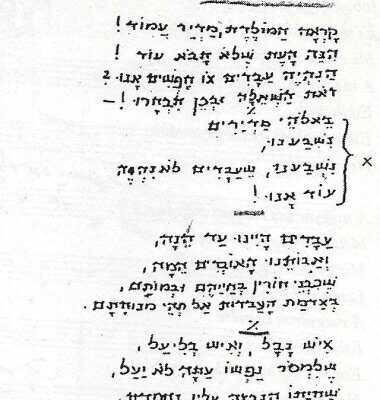 קָרְאָה הַמּוֹלֶדֶת, מַדְיָר עֲמוֹד!
הִנֵּה הָעֵת שֶׁלֹּא תָבֹא עוֹד!
הֲנִהְיֶה עֲבָדִים אוֹ חָפְשִׁים אָנוּ?
זֹאת הַשְּׁאֵלָה וּבְכֵן תִּבְחָרוּ! –
בֵּאלֹהֵי מַדְיָרִים
נִשְׁבַּעְנוּ,
x
נִשְׁבַּעְנוּ, שֶׁעֲבָדִים לֹא נִהְיֶה
עוֹד אָנוּ!
עֲבָדִים הָיִינוּ עַד הֵנָּה,
וַאֲבוֹתֵינוּ הָאוֹבְדִים הֵמָּה,
שֶׁכִּבְנֵי חוֹרִין בְּחַיֵּיהֶם וּבְמוֹתָם,
בְּאַדְמַת הָעַבְדוּת אַל תְּהִי מְנוּחָתָם.
אִישׁ נָבָל, וְאִישׁ בְּלִיַּעַל,
שֶׁלִּמְסֹר נַפְשׁוֹ עַתָּה לֹא יַעַל,